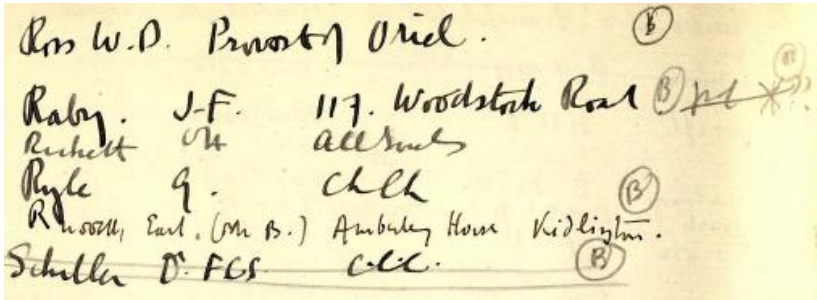 Ross W.D. Provost of Oriel. B
Raby. J.F. 117. Woodstock Road B
All Souls
Ryle G. Ch Ch B
Russell, Earl. (Mr B.) Amberley House Kidlington.
Schiller D. FCS. C.C.C. B